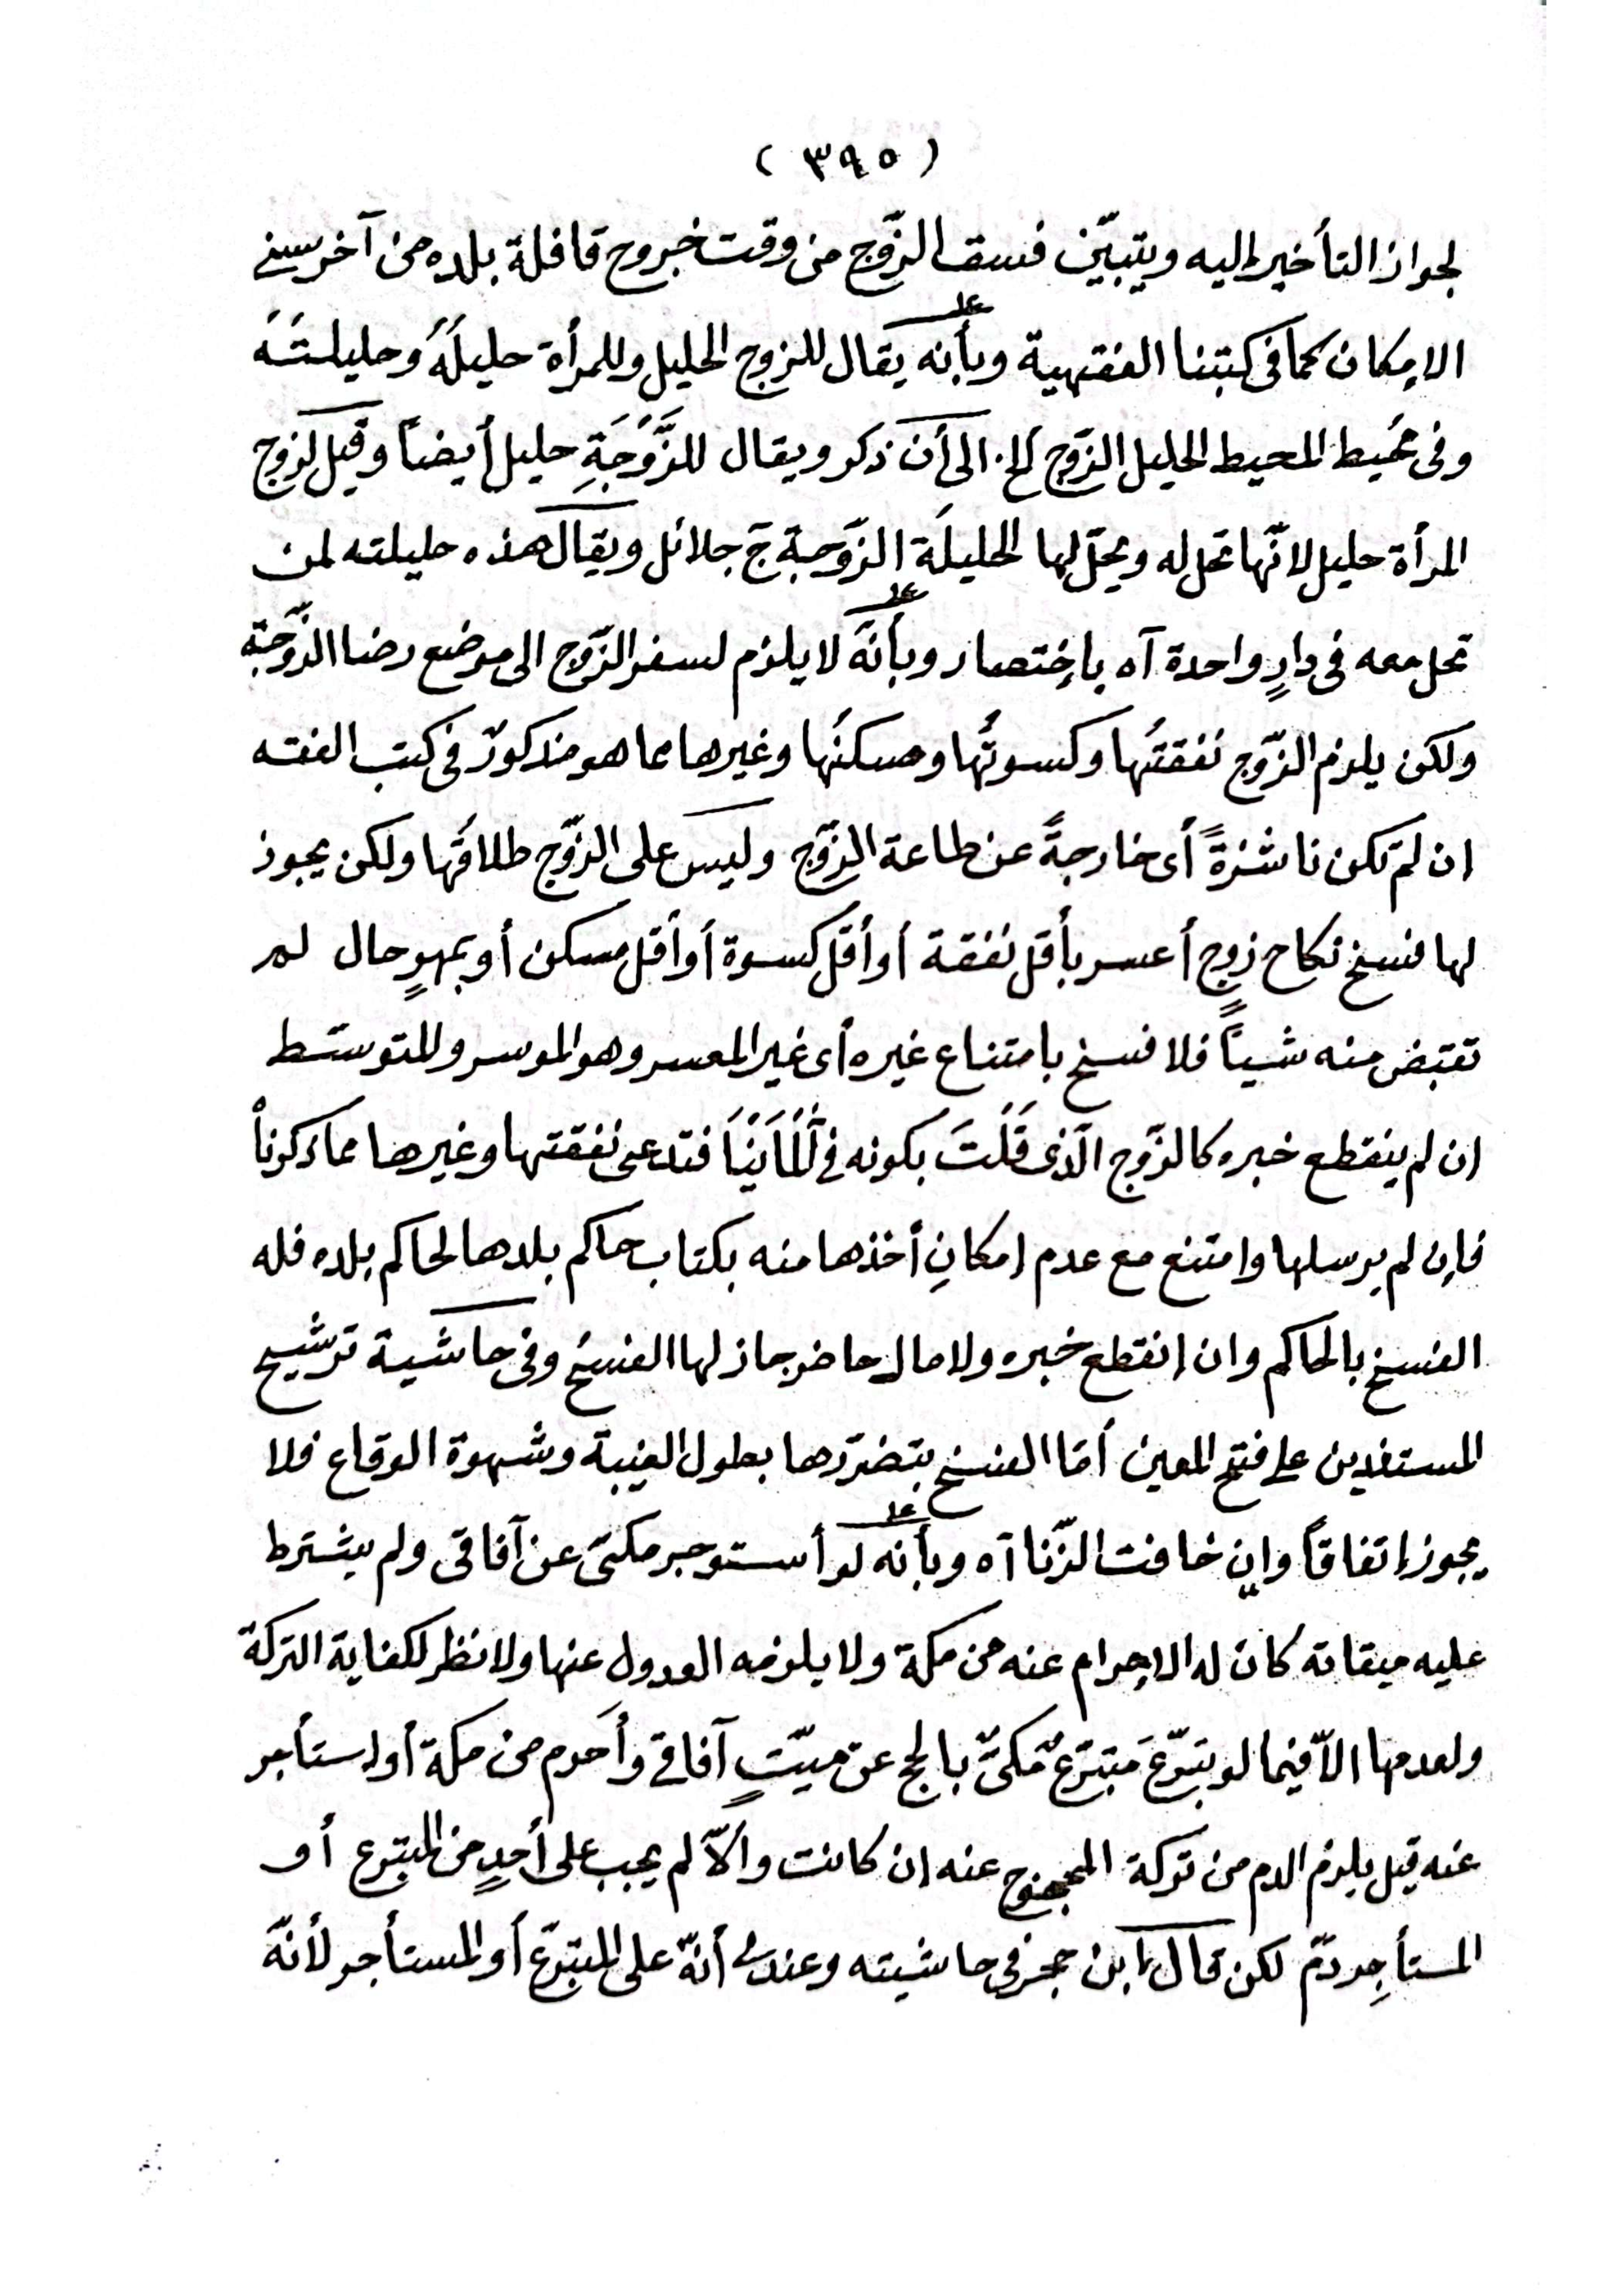 (٣٩٥)
لجواز التأخير إليه ويتبيّن فسق الزّوج من وقت خروج قافلة بلده من آخر سني
الامكان كما فى كتبنا الفقهية وبأنه يقال للزوج الحليل وللمرأة حليلَهُ وحليلتَهُ
وفى محُيط المحيط الحليل الزّوج الخ. الى أن ذكر ويقال للزَّوْجَةِ حليل أيضاً وقيل لزوج
المرأة حليل لانّها تحل له ويحلّ لها الحليلَة الزّوجة ج حلائل ويقال هذه حليلته لمن
تحل معه فى دارٍ واحدة آه باختصار وبأنّهَ لا يلزم لسفر الزّوج الى موضع رضا الزّوجة
ولكن يلزم الزّوج نفقتُها وكسوتُها ومسكنُها وغيرها مما هو مذكورٌ فى كتب الفقه
ان لم تكن ناشزةً أى خارجةً عن طاعة الزّوج وليس على الزّوج طلاقُها ولكن يجوز
لها فسخ نكاح زوجٍ أعسر بأقل نفقة أو أقل كسوة أو أقل مسكن أو بمهرٍ حال لم
تقبض منه شيئاً فلا فسخ بامتناع غيره أى غير المعسر وهو الموسر وللمتوسّط
ان لم ينقطع خبره كالزّوج الّذى قلْتَ بكونه في ألْمَانْيَا فتدعى نفقتها وغيرها مما ذكرناْ
فإن لم يرسلها وامتنع مع عدم إمكانِ أخذها منه بكتاب حاكم بلدها لحاكم بلده فله
الفسخ بالحاكم وان إنقطع خبره ولا مال حاضر جاز لها الفسخُ وفى حاشية ترشيح
المستفدين على فتح المعين أمّا الفسخ بتضرّرها بطول الغيبة وشهوة الوقاع فلا
يجوز إتفاقاً وإن خافت الزّنا آه وبأنه لو أستوجر مكىّ عن آفاقى ولم يشترط
عليه ميقاته كان له الاحرام عنه من مكة ولا يلزمه العدول عنها ولا نظر لكفاية التركة
ولعدمها الاّ فيما لو تبرّعَ متبرّعٌ مكىٌّ بالحج عن ميّتٍ آفاقي وأحرم من مكة أو استأجر
عنه قيل يلزم الدم من تركة المحجوج عنه ان كانت وألاّ لم يجب على أحدٍ من المتبرع أو
المستأجِر دمٌ لكن قال ابن حجر فى حاشيته وعندى أنّه على المتبرّع أو المستأجر لأنّهَ